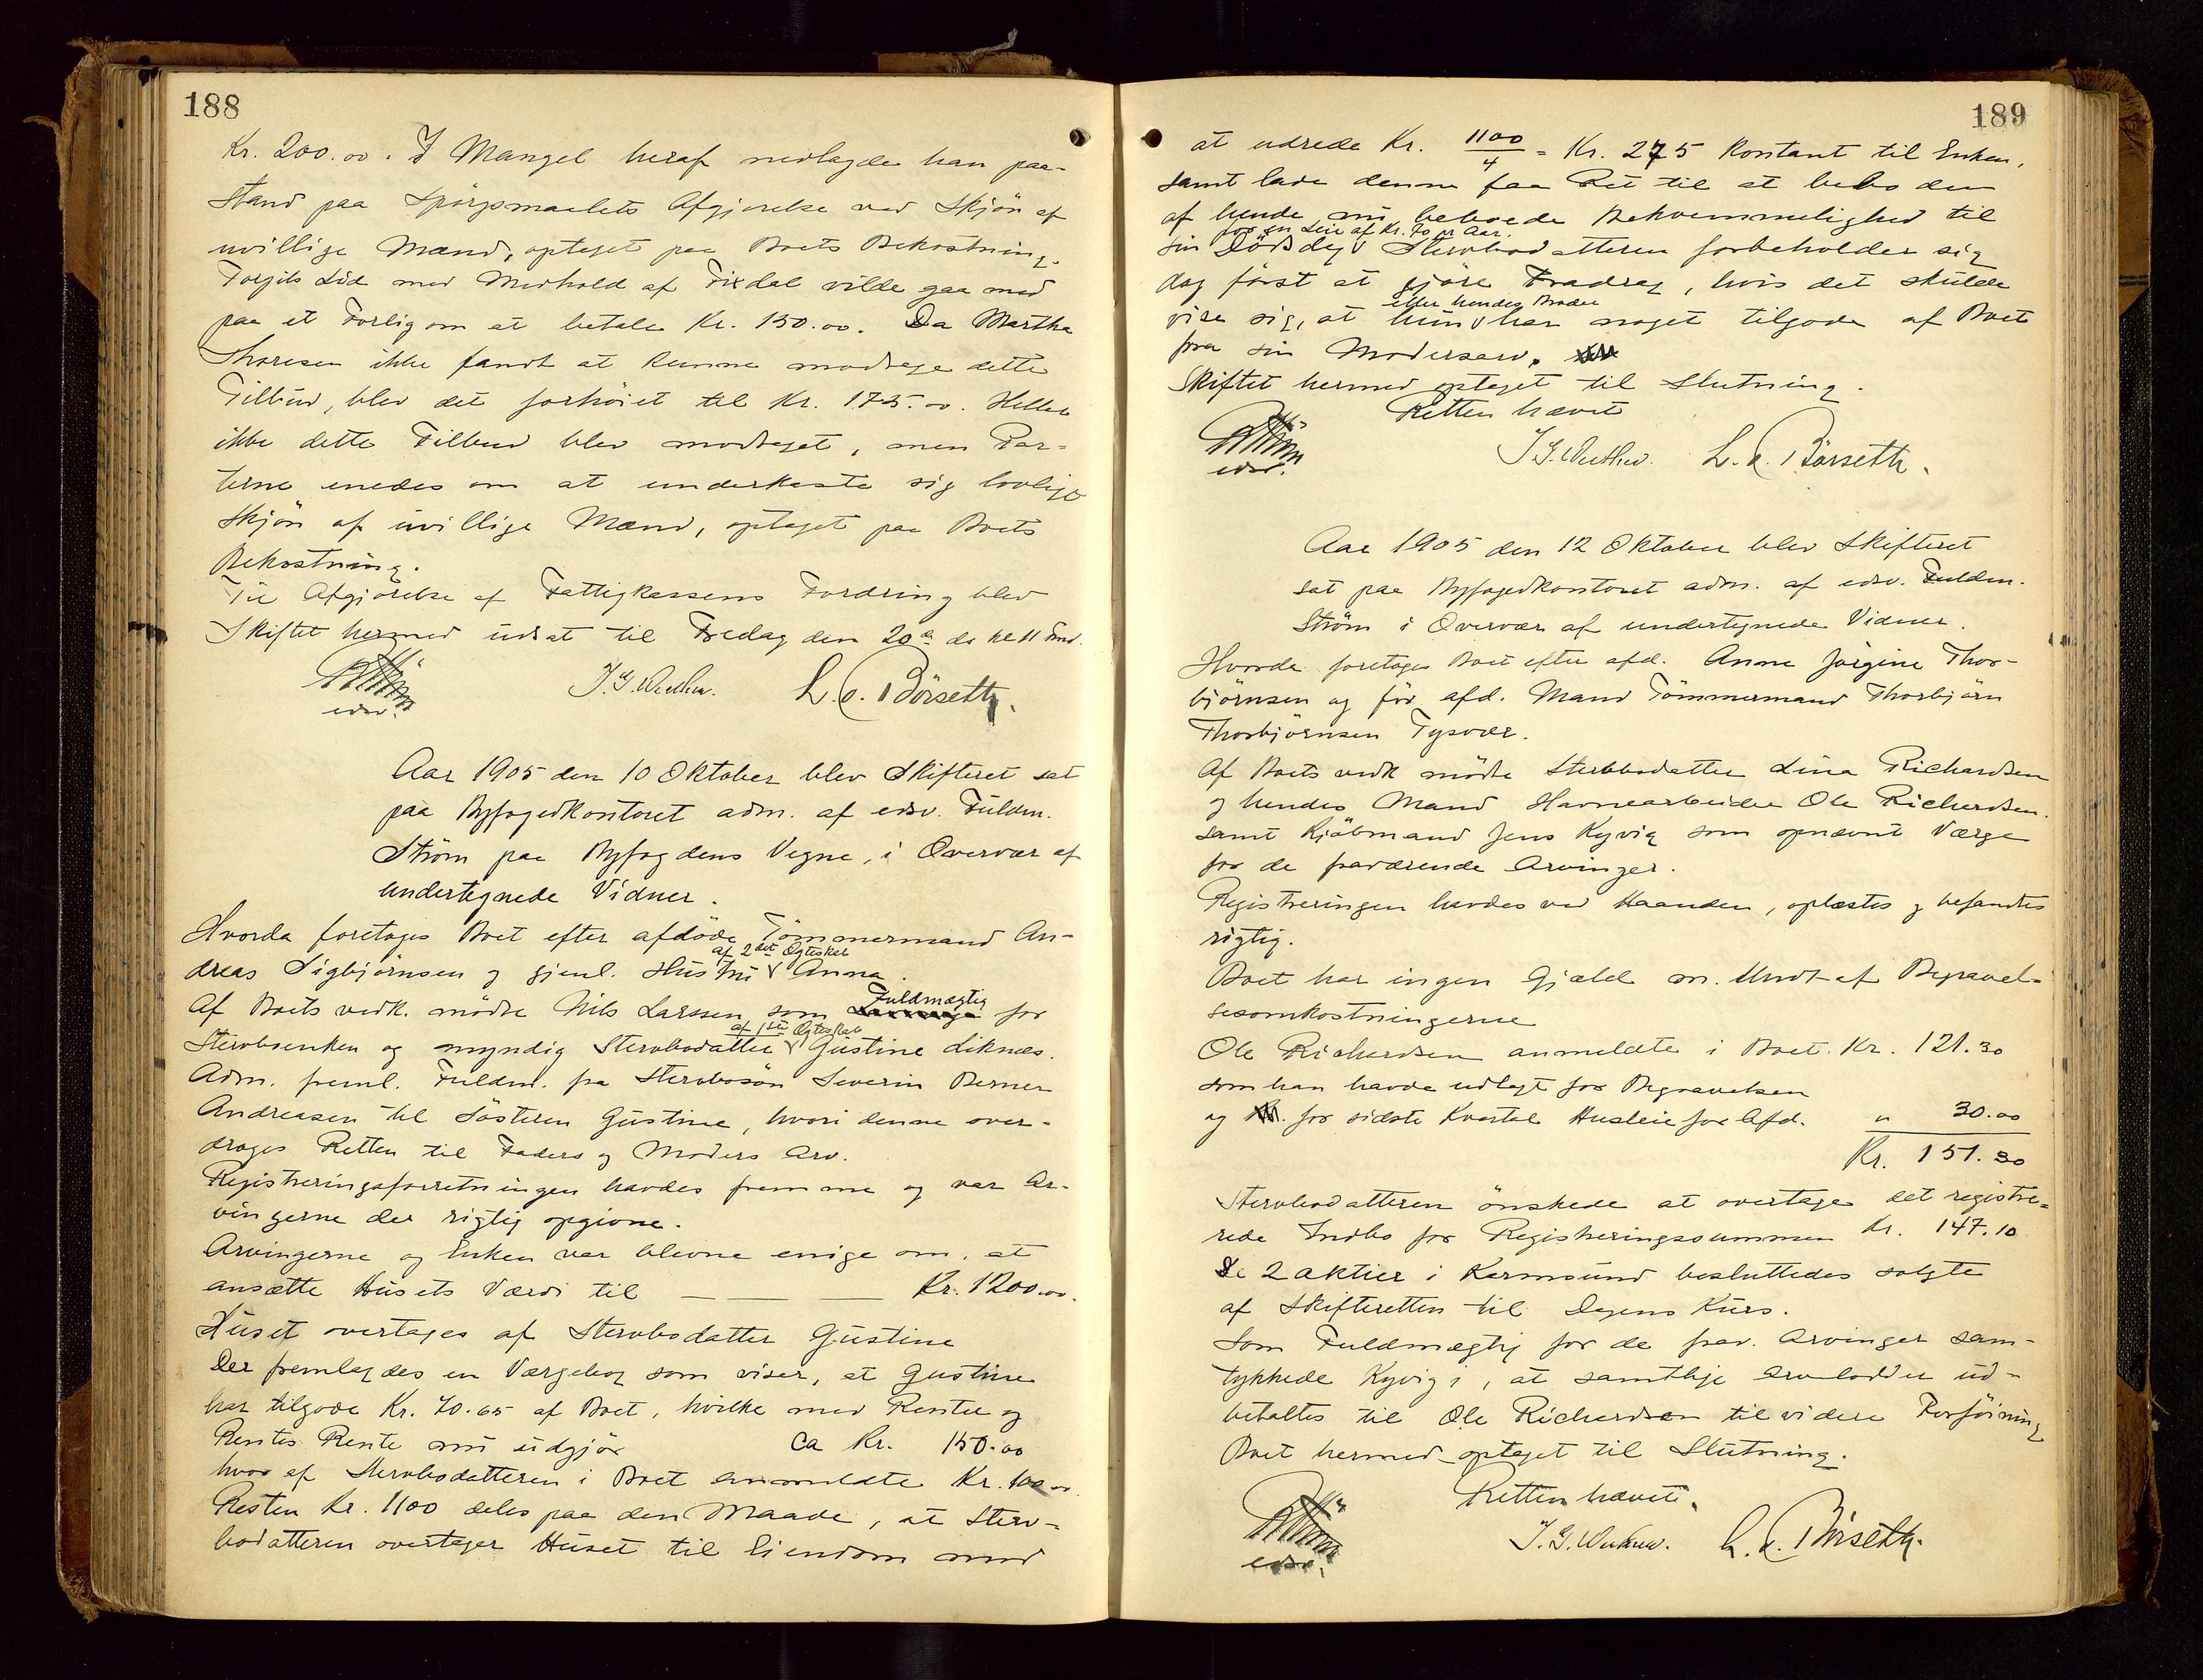 188
Kr. 200.00. I Mangel heraf nedlagde han paa-
stand paa Spörgsmaalets Afgjörelse ved Skjön af
uvillige Mænd, optaget paa Boets Bekostning.
Torgils Lid med Medhold af Fixdal vilde gaa med
paa et Forlig om at betale Kr. 150.00. Da Martha
Thoresen ikke fandt at kunne modtage dette
Tilbud, blev det forhöiet til Kr. 175.00. Heller
ikke dette Tilbud blev modtaget, men Par-
terne enedes om at underkaste sig lovlige
Skjön af uvillige Mænd, optaget paa Boets
Bekostning.
Til Afgjörelse af Fattigkassens Fordring blev
Skiftet hermed udsat til Fredag den 20de ds kl 11 Fmd.
Ström
edsv.
L. O. Börseth.
Aar 1905 den 10 Oktober blev Skifteret sat
paa Byfogedkontoret adm. af edsv. Fuldm.
Ström paa Byfogdens Vegne, i Overvær af
undertegnede Vidner.
Hvorda foretoges Boet efter afdöde Tömmermand An-
af 2det Ægteskab
dreas Sigbjörnsen og gjenl. Hustru V Anna.
Fuldmægtig
Af Boets vedk. mödte Nils Larssen som for
af 1ste Ægteskab
Stervboenken og myndig Stervbodatter V Gustine Liknes.
Adm. freml. Fuldm. fra Stervbosön Severin Berner
Andreasen til Sösteren Gustine, hvori denne over-
drages Retten til Faders og Moders Arv.
Registreringsforretningen havdes fremme og var Ar-
vingerne der rigtig opgivne.
Arvingerne og Enken var blevne enige om, at
ansætte Husets Værdi til — — — Kr. 1200.00.
Huset overtages af Stervbodatter Gustine
Der fremlagdes en Værgebog som viser, at Gustine
har tilgode Kr. 70.65 af Boet, hvilke med Renter og
Rentes Rente nu udgjör ca Kr. 150.00
hvor af Stervbodatteren i Boet anmeldte Kr. 100.00.
Resten Kr. 1100 deles paa den Maade, at Sterv-
bodatteren overtager Huset til Eiendom mod
189
at udrede Kr. 1100/4 = Kr. 275 kontant til Enken,
samt lade denne faa Ret til at bebo den
af hende nu beboede Bekvemmelighed til
for en Leie af Kr. 70 pr Aar.
sin Dödsdag V Stervbodatteren forbeholder sig
dog först at gjöre Fradrag, hvis det skulde
eller hendes Broder
vise sig, at hun V har noget tilgode af Boet
fra sin Modersarv.
Skiftet hermed optaget til Slutning.
Retten hævet
Ström
edsv.
L. O. Börseth.
Aar 1905 den 12 Oktober blev Skifteret
sat paa Byfogedkontoret adm. af edsv. Fuldm.
Ström i Overvær af undertegnede Vidner.
Hvorda foretoges Boet efter afd. Anne Jörgine Thor-
björnsen og för afd. Mand Tömmermand Thorbjörn
Thorbjörnsen Tysvær.
Af Boets vedk mödte Stervbodatter Lina Richardsen
og hendes Mand Havnearbeider Ole Richardsen.
samt Kjöbmand Jens Kyvig som opnævnt Værge
for de fraværende Arvinger.
Registreringen havdes ved Haanden, oplæstes og befandtes
rigtig.
Boet har ingen Gjæld m. Undt. af Begravel-
sesomkostningerne
Ole Richardsen anmeldte i Boet. Kr. 121.30
som han havde udlagt for Begravelsen
og for sidste Kvartal Husleie for Afd. " 30.00
Kr. 151.30
Stervbodatteren önskede at overtage det registre-
rede Indbo for Registreringssummen Kr. 147.10
De 2 Aktier i Karmsund besluttedes solgte
af Skifteretten til Dagens Kurs.
Som Fuldmægtig for de frav. Arvinger sam-
tykkede Kyvig i, at samtlige Arvelodder ud-
betaltes til Ole Richardsen til videre Forföining
Boet hermed optaget til Slutning.
Retten hævet.
Ström
edsv.
L. O. Börseth.